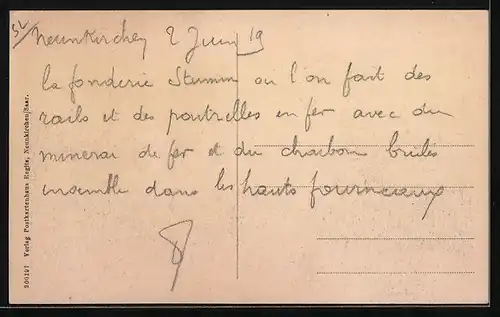 Neunkirchen 2 Juin 19
la fonderie Stumm où l'on fait des
rails et des poutrelles en fer avec du
minerai de fer et du charbon brulés
ensemble dans les hauts fourneaux
200197 Verlag Postkartenhaus Regitz, Neunkirchen/Saar.